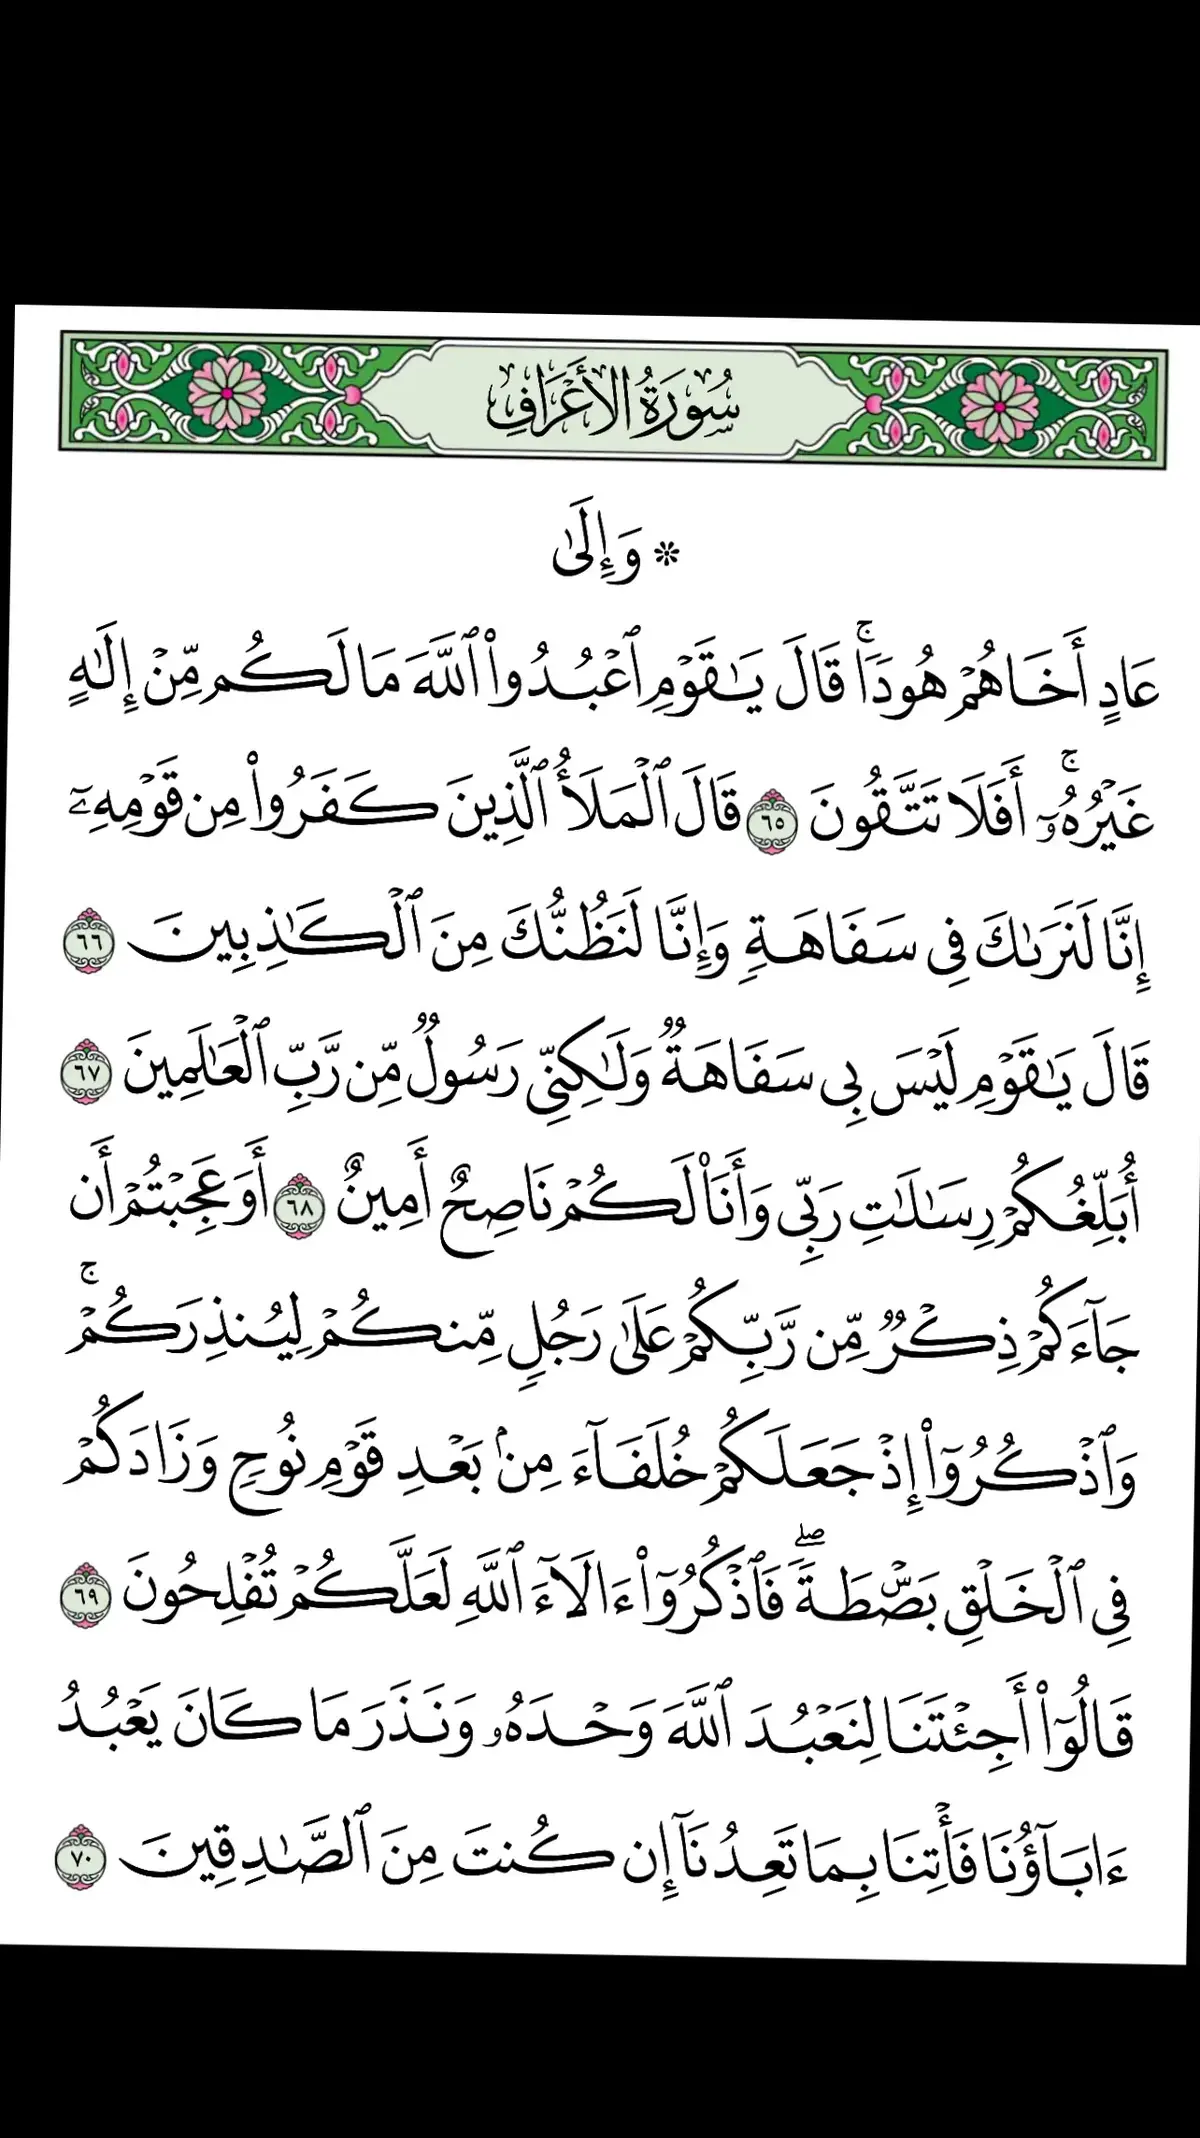 سُورَةُ الأَعْرَافِ
۞ وَإِلَىٰ
عَادٍ أَخَاهُمْ هُودًاۚ قَالَ يَٰقَوْمِ ٱعْبُدُواْ ٱللَّهَ مَا لَكُم مِّنْ إِلَٰهٍ
غَيْرُهُۥٓۚ أَفَلَا تَتَّقُونَ ٦٥ قَالَ ٱلْمَلَأُ ٱلَّذِينَ كَفَرُواْ مِن قَوْمِهِۦٓ
إِنَّا لَنَرَىٰكَ فِي سَفَاهَةٍ وَإِنَّا لَنَظُنُّكَ مِنَ ٱلْكَٰذِبِينَ ٦٦
قَالَ يَٰقَوْمِ لَيْسَ بِي سَفَاهَةٌ وَلَٰكِنِّي رَسُولٌ مِّن رَّبِّ ٱلْعَٰلَمِينَ ٦٧
أُبَلِّغُكُمْ رِسَٰلَٰتِ رَبِّي وَأَنَا۠ لَكُمْ نَاصِحٌ أَمِينٌ ٦٨ أَوَعَجِبْتُمْ أَن
جَآءَكُمْ ذِكْرٌ مِّن رَّبِّكُمْ عَلَىٰ رَجُلٍ مِّنكُمْ لِيُنذِرَكُمْۚ
وَٱذْكُرُوٓاْ إِذْ جَعَلَكُمْ خُلَفَآءَ مِنۢ بَعْدِ قَوْمِ نُوحٍ وَزَادَكُمْ
فِي ٱلْخَلْقِ بَصْۜطَةًۖ فَٱذْكُرُوٓاْ ءَالَآءَ ٱللَّهِ لَعَلَّكُمْ تُفْلِحُونَ ٦٩
قَالُوٓاْ أَجِئْتَنَا لِنَعْبُدَ ٱللَّهَ وَحْدَهُۥ وَنَذَرَ مَا كَانَ يَعْبُدُ
ءَابَآؤُنَا فَأْتِنَا بِمَا تَعِدُنَآ إِن كُنتَ مِنَ ٱلصَّٰدِقِينَ ٧٠